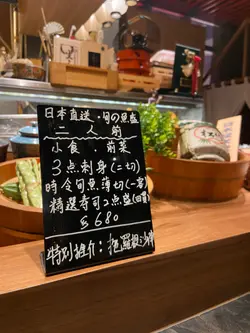 日本直送・旬の魚盛
二人前
小食 前菜
3点刺身(二切)
時令旬魚薄切(一客)
精選寿司2点盛(四貫)
$680
特別推介:把羅根沙律